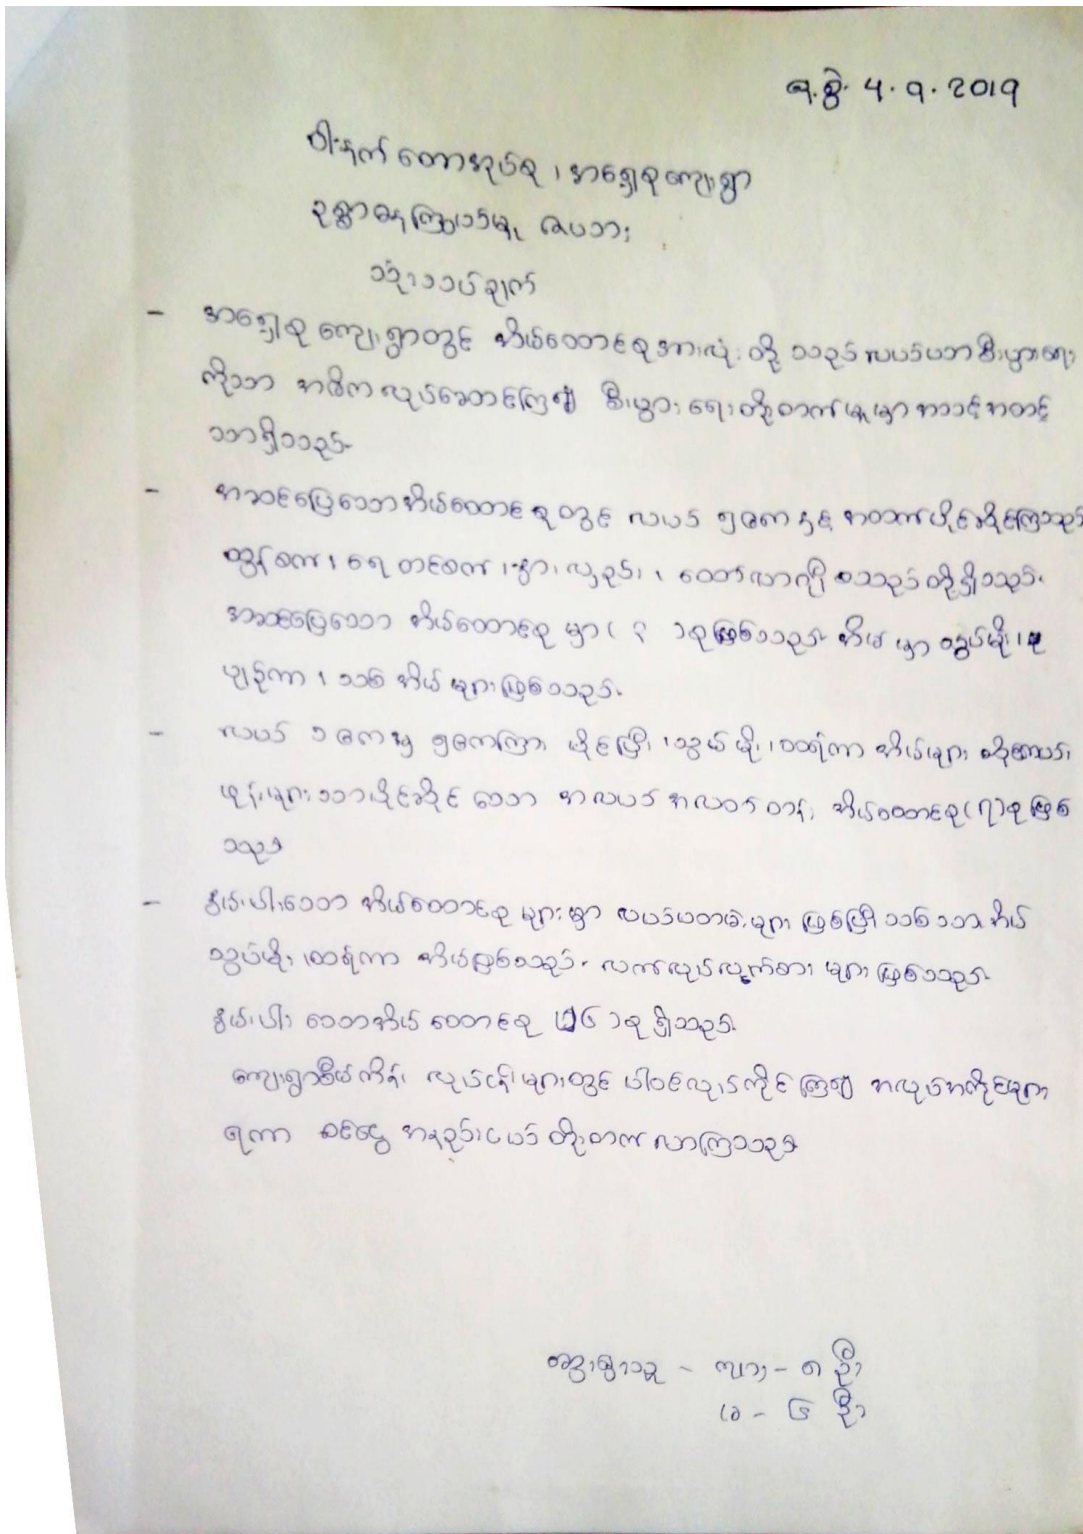 ရ.စွဲ. 4.9.2019
ဝါးနက်တောအုပ်စု၊ အရှေ့စုကျေးရွာ
ဥစ္စာဓနကြွယ်ဝမှု ဇယား
သုံးသပ်ချက်
- အရှေ့စုကျေးရွာတွင် အိမ်ထောင်စုအားလုံးတို့ သည် လယ်ယာစီးပွားရေး
ကိုသာ အဓိကလုပ်ဆောင်ကြ၍ စီးပွားရေးတိုးတက်မှုမှာ အသင့်အတင့်
သာရှိသည်။
- အဆင်ပြေသောအိမ်ထောင်စုတွင် လယ် ၅ဧကနှင့် အထက်ပိုင်ဆိုင်ကြသည်
ထွန်စက်၊ ရေတင်စက်၊ နွား၊ လှည်း၊ ထော်လာဂျီ စသည်တို့ရှိသည်။
အဆင်ပြေသော အိမ်ထောင်စုမှာ ( ၃ )စုဖြစ်သည်။ အိမ်မှာ သွပ်မိုး၊
ပျဉ်ကာ၊ သစ်အိမ်များဖြစ်သည်။
- လယ် ၁ ဧကမှ ၅ဧကကြား ပိုင်ပြီး၊ သွပ်မိုး၊ ထရံကာ အိမ်များ ဆိုင်ကယ်၊
ဖုန်းများသာပိုင်ဆိုင်သော အလယ်အလတ်တန်း အိမ်ထောင်စု(၇)စုဖြစ်
သည်။
- နွမ်းပါးသော အိမ်ထောင်စုများမှာ လယ်ယာမဲ့များ ဖြစ်ပြီး သစ်သားအိမ်
သွပ်မိုး၊ ထရံကာ အိမ်ဖြစ်သည်။ လက်လုပ်လှုက်စား များဖြစ်သည်။
နွမ်းပါးသောအိမ်ထောင်စု ၂၆ )စုရှိသည်။
ကျေးရွာစီမံကိန်း လုပ်ငန်းများတွင် ပါဝင်လုပ်ကိုင်ကြ၍ အလုပ်အကိုင်များ
ရကာ ဝင်ငွေ အနည်းငယ် တိုးတက်လာကြသည်။
ဆွေးနွေးသူ - ကျား - ၈ ဦး
မ - ၆ ဦး